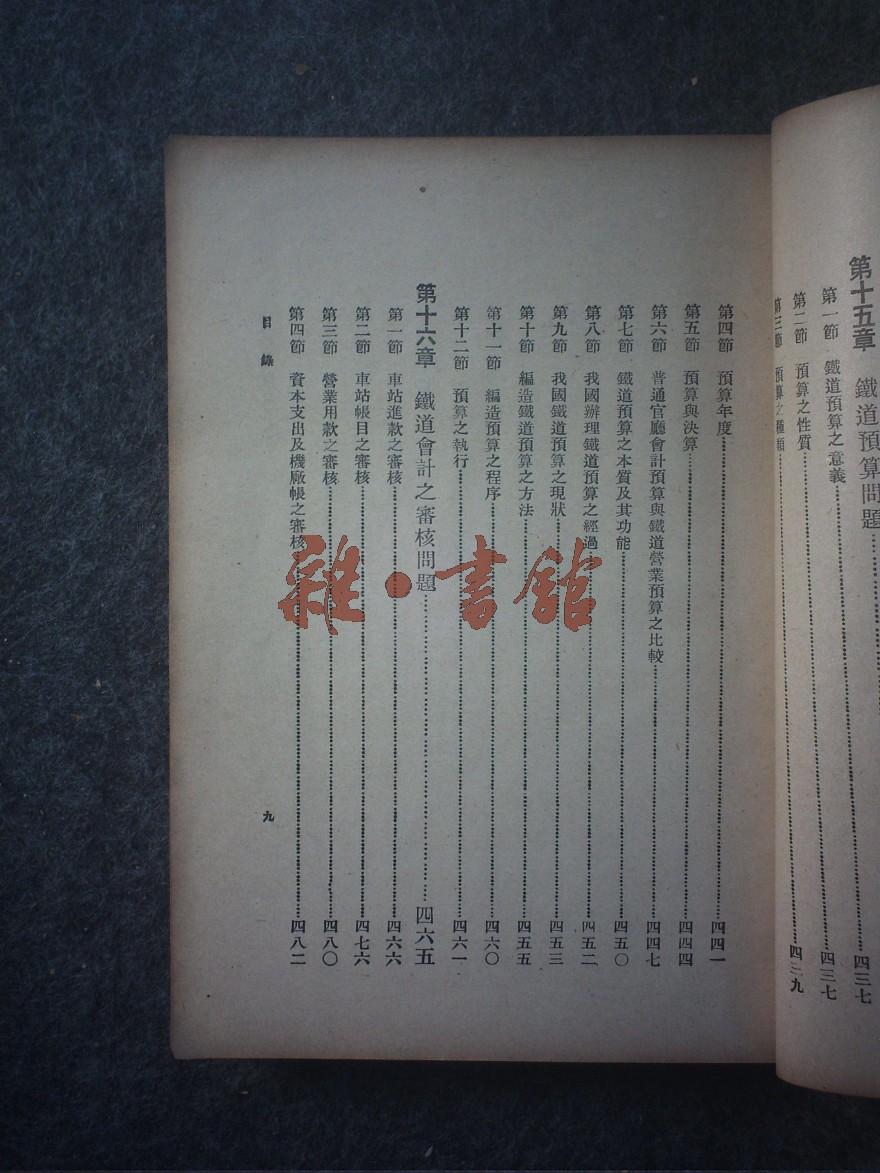 第十五章　鐵道預算問題………四三七
第一節　鐵道預算之意義………四三七
第二節　預算之性質………四三九
第三節　預算之種類
第四節　預算年度………四四一
第五節　預算與決算………四四四
第六節　普通官廳會計預算與鐵道營業預算之比較………四四七
第七節　鐵道預算之本質及其功能………四五〇
第八節　我國辦理鐵道預算之經過………四五二
第九節　我國鐵道預算之現狀………四五三
第十節　編造鐵道預算之方法………四五五
第十一節　編造預算之程序………四六〇
第十二節　預算之執行………四六一
第十六章　鐵道會計之審核問題………四六五
第一節　車站進款之審核………四六六
第二節　車站帳目之審核………四七六
第三節　營業用款之審核………四八〇
第四節　資本支出及機廠帳之審核………四八二
目錄
九
雜·書館